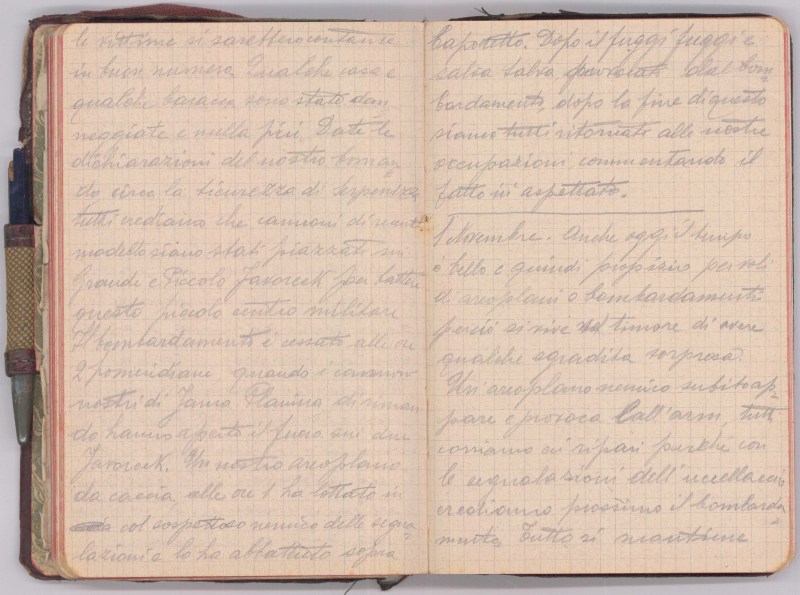 le vittime si sarebbero contanse
in buon numero. Qualche casa e
qualche baracca sono state dan
neggiate e nulla più. Date le
dichiarazioni del nostro coman=
do circa la sicurezza di Serpenizza
tutti crediamo che cannoni di nuovo
modello siano stati piazzati sui
Grande e Piccolo Javorcek per battere
questo piccolo centro militare
Il bombardamento è cessato alle ore
2 pomeridiane quando i cannoni
nostri di Jama Planina di riman
do hanno aperto il fuoco sui due
Javorcek. Un nostro areoplano
da caccia, alle ore 1 ha lottato in
col sospettoso nemico delle segna=
lazioni e lo ha abbattuto sopra
Caporetto. Dopo il fuggi fuggi e
salva salva provocati dal bom=
bardamento, dopo la fine di questo
siamo tutti ritornati alle nostre
occupazioni commentando il
fatto in aspettato.
1 Novembre. Anche oggi il tempo
è bello e quindi propizio per voli
di areoplani o bombardamenti
perciò si vive nel timore di avere
qualche sgradita sorpresa.
Un areoplano nemico subito ap=
pare e provoca l'all'arm, tutti
corriamo ai ripari perché con
le segnalazioni dell'uccellaccio
crediamo prossimo il bombarda
mento. Tutto si mantiene